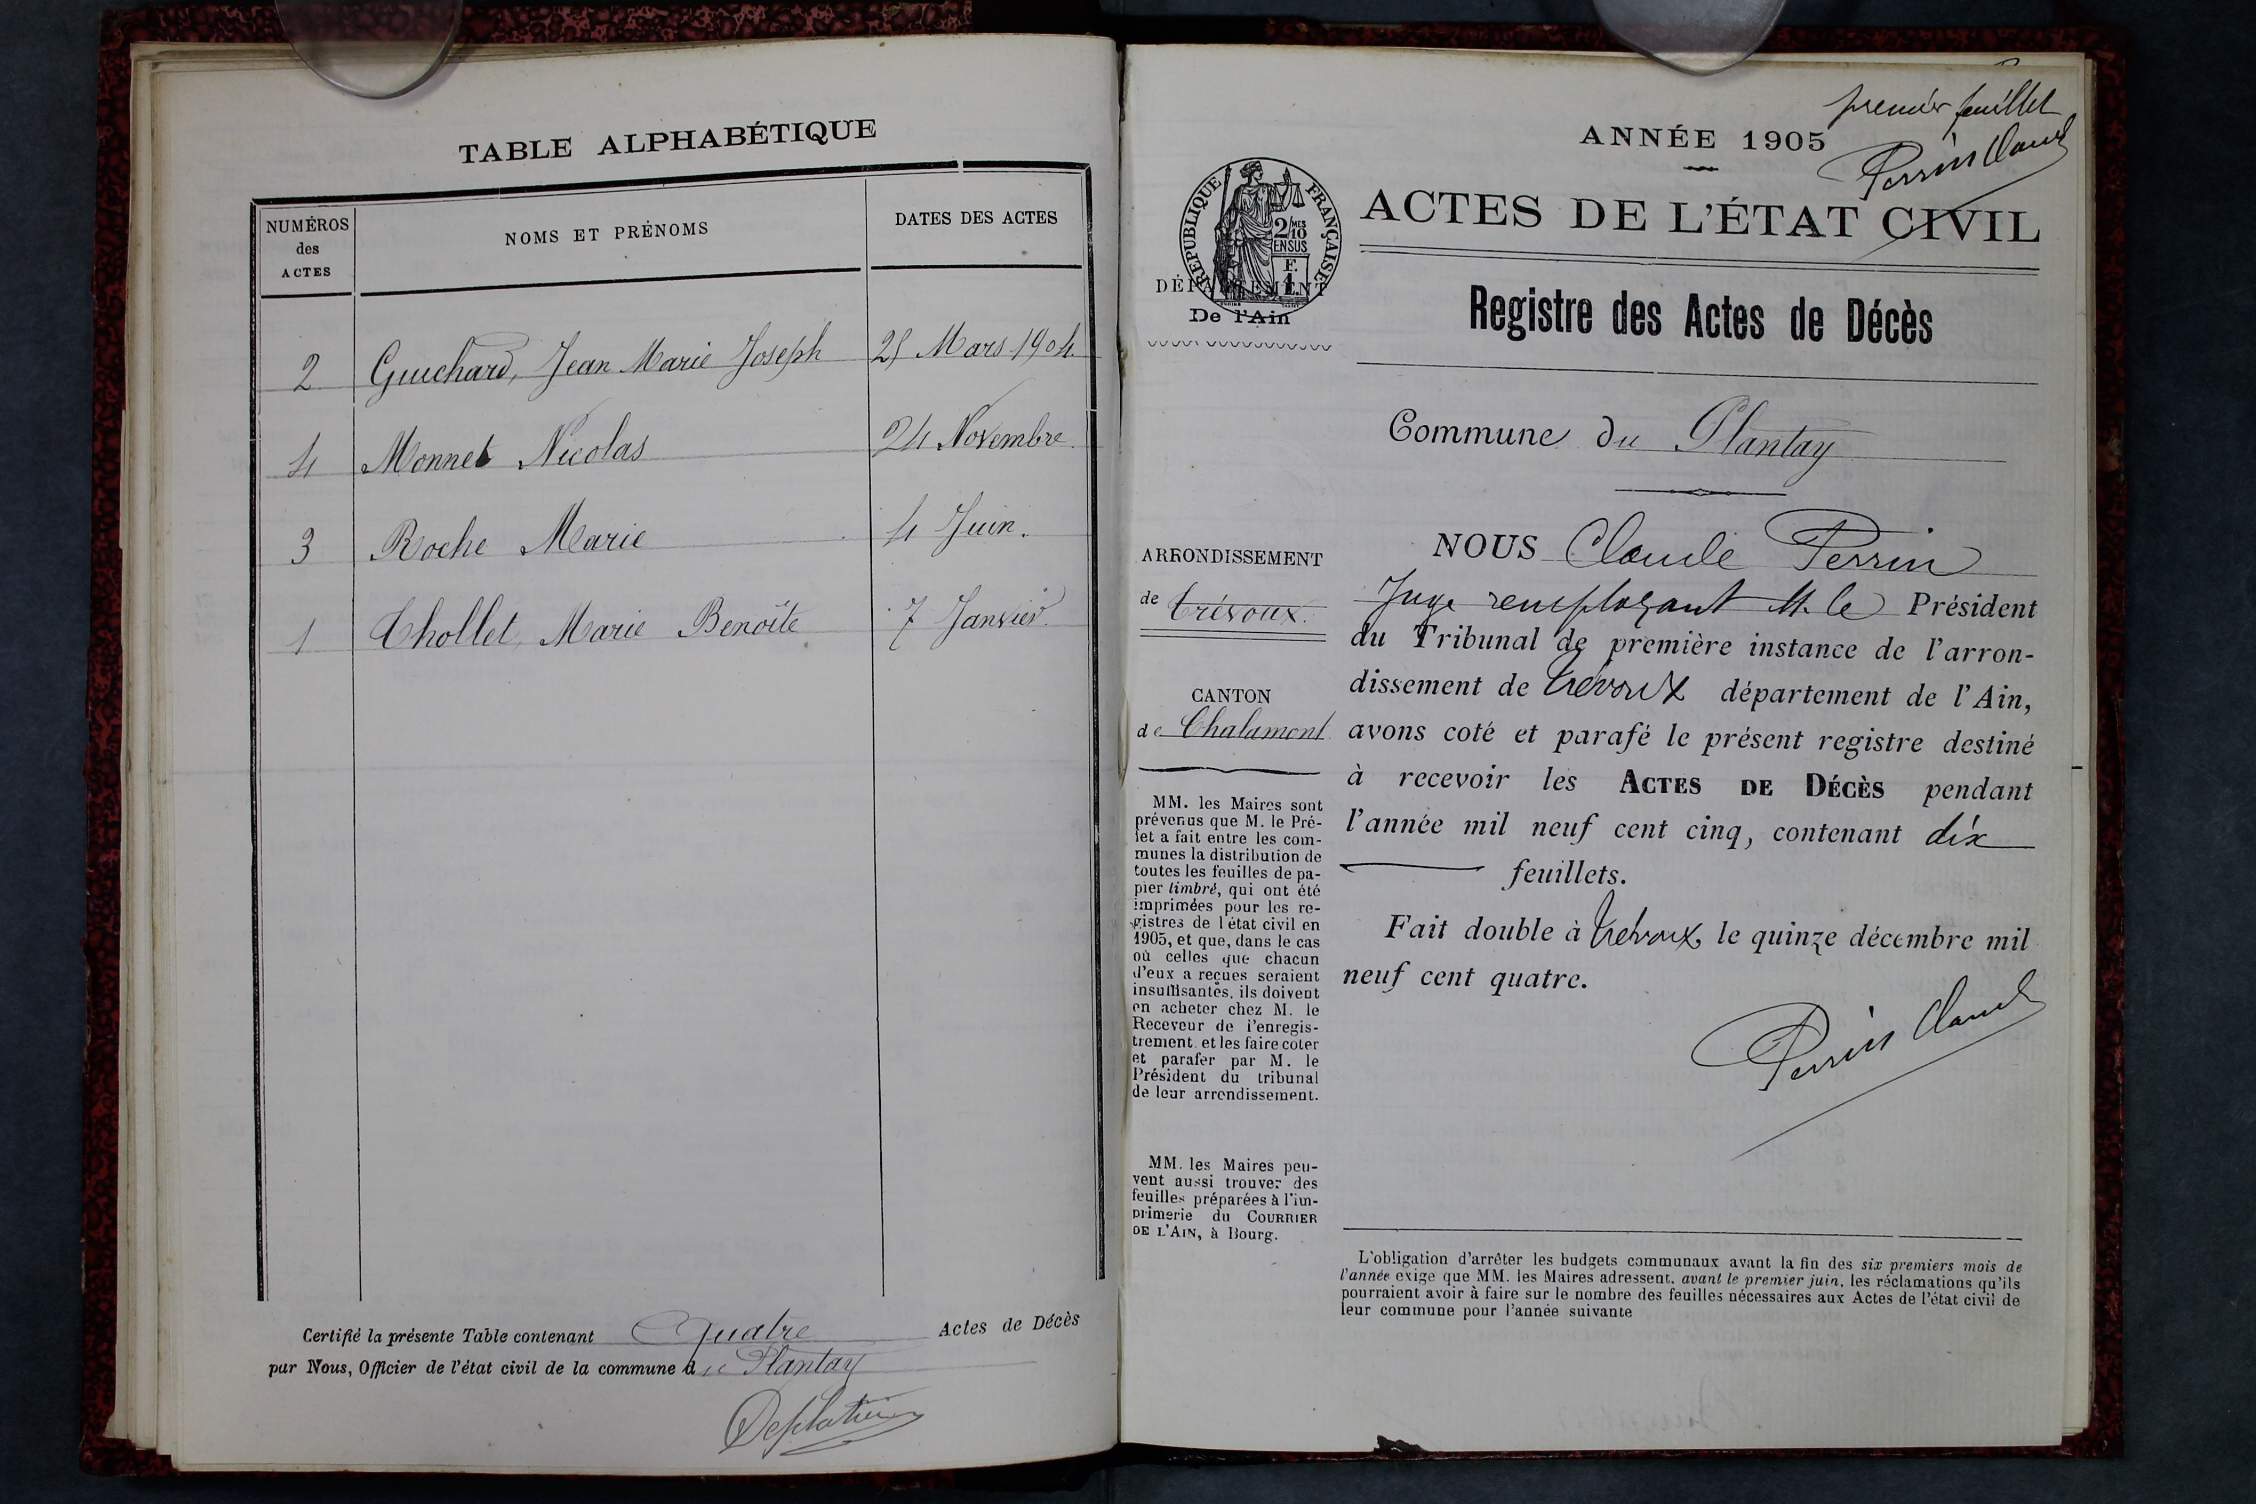 TABLE ALPHABÉTIQUE
NUMÉROS
des
ACTES
NOMS ET PRÉNOMS
DATES DES ACTES
2 Guichard, Jean Marie Joseph 25 Mars 1904
4 Monnet Nicolas 24 Novembre
3 Roche Marie 4 Juin.
1 Thollet, Marie Benoîte 7 Janvier
Certifié la présente Table contenant Quatre Actes de Décès
par Nous, Officier de l'état civil de la commune du Plantay
premier feuillet
Perrin Claude
ANNÉE 1905
ACTES DE L'ÉTAT CIVIL
RÉPUBLIQUE FRANÇAISE
2/10 MES
EN SUS
F.
1
DÉPARTEMENT
De l'Ain
Registre des Actes de Décès
Commune du Plantay
ARRONDISSEMENT
de Trévoux.
CANTON
de Chalamont
MM. les Maires sont
prévenus que M. le Pré-
fet a fait entre les com-
munes la distribution de
toutes les feuilles de pa-
pier timbré, qui ont été
imprimées pour les re-
gistres de l'état civil en
1905, et que, dans le cas
où celles que chacun
d'eux a reçues seraient
insuffisantes, ils doivent
en acheter chez M. le
Receveur de l'enregis-
trement et les faire coter
et parafer par M. le
Président du tribunal
de leur arrondissement.
MM. les Maires peu-
vent aussi trouver des
feuilles préparées à l'im-
primerie du COURRIER
DE L'AIN, à Bourg.
NOUS Claude Perrin
Juge remplaçant M. le Président
du Tribunal de première instance de l'arron-
dissement de Trévoux département de l'Ain,
avons coté et parafé le présent registre destiné
à recevoir les ACTES DE DÉCÈS pendant
l'année mil neuf cent cinq, contenant dix
feuillets.
Fait double à Trévoux, le quinze décembre mil
neuf cent quatre.
Perrin Claude
L'obligation d'arrêter les budgets communaux avant la fin des six premiers mois de
l'année exige que MM. les Maires adressent, avant le premier juin, les réclamations qu'ils
pourraient avoir à faire sur le nombre des feuilles nécessaires aux Actes de l'état civil de
leur commune pour l'année suivante